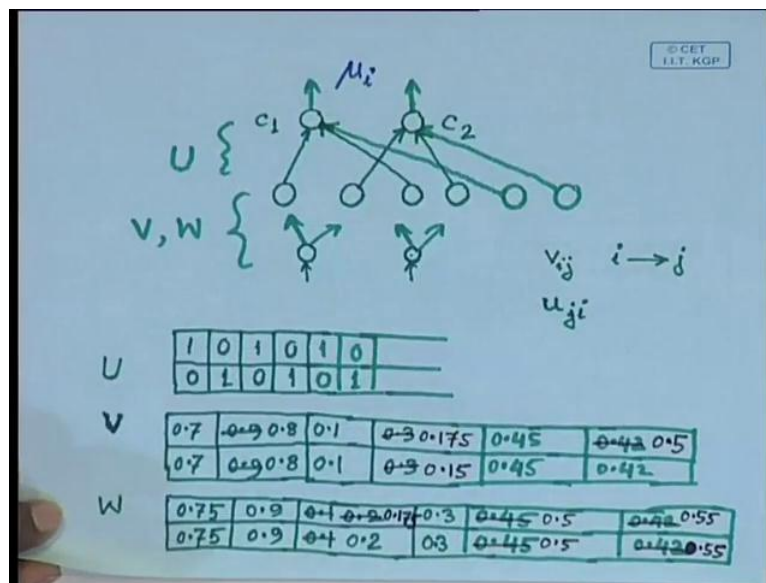 © CET
I.I.T. KGP
μi
C1 C2
U {
V, W {
Vij i → j
uji
U
1 0 1 0 1 0
0 1 0 1 0 1
V
0.7 0.9 0.8 0.1 0.3 0.175 0.45 0.42 0.5
0.7 0.9 0.8 0.1 0.3 0.15 0.45 0.42
W
0.75 0.9 0.1 0.2 0.17 0.3 0.45 0.5 0.42 0.55
0.75 0.9 0.1 0.2 0.3 0.45 0.5 0.42 0.55